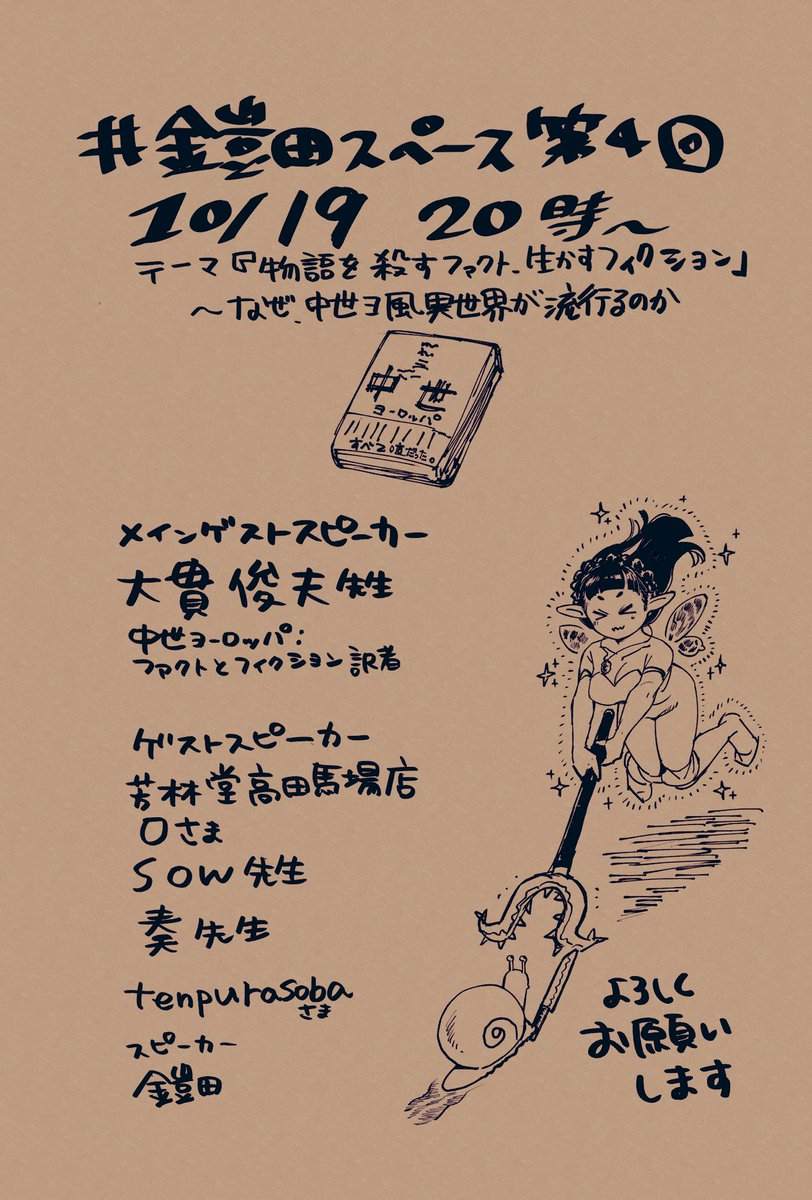 #鎧田スペース第4回
10/19 20時〜
テーマ『物語を殺すファクト、生かすフィクション」
〜なぜ、中世ヨ風異世界が流行るのか
中世
ヨーロッパ
すべて嘘だった。
メインゲストスピーカー
大貫俊夫先生
中世ヨーロッパ:
ファクトとフィクション訳者
ゲストスピーカー
芳林堂高田馬場店
Oさま
SOW先生
奏先生
tenpurasoba
さま
スピーカー
鎧田
よろしく
お願い
します